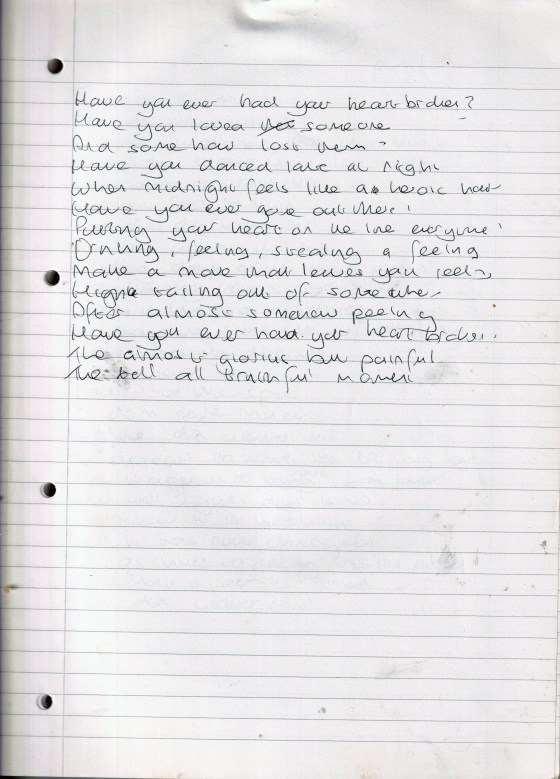 Have you ever had your heart broken?
Have you loved someone
And some how lost them?
Have you danced late at night
When midnight feels like a heroic hour
Have you ever gone out there!
Putting your heart on the line everytime!
Drinking, feeling, stealing a feeling
Make a move that leaves you reeling
out of
After almost somehow peeling
Have you ever had your heart broken.
The almost glorius but painful
The tell all truthful moment